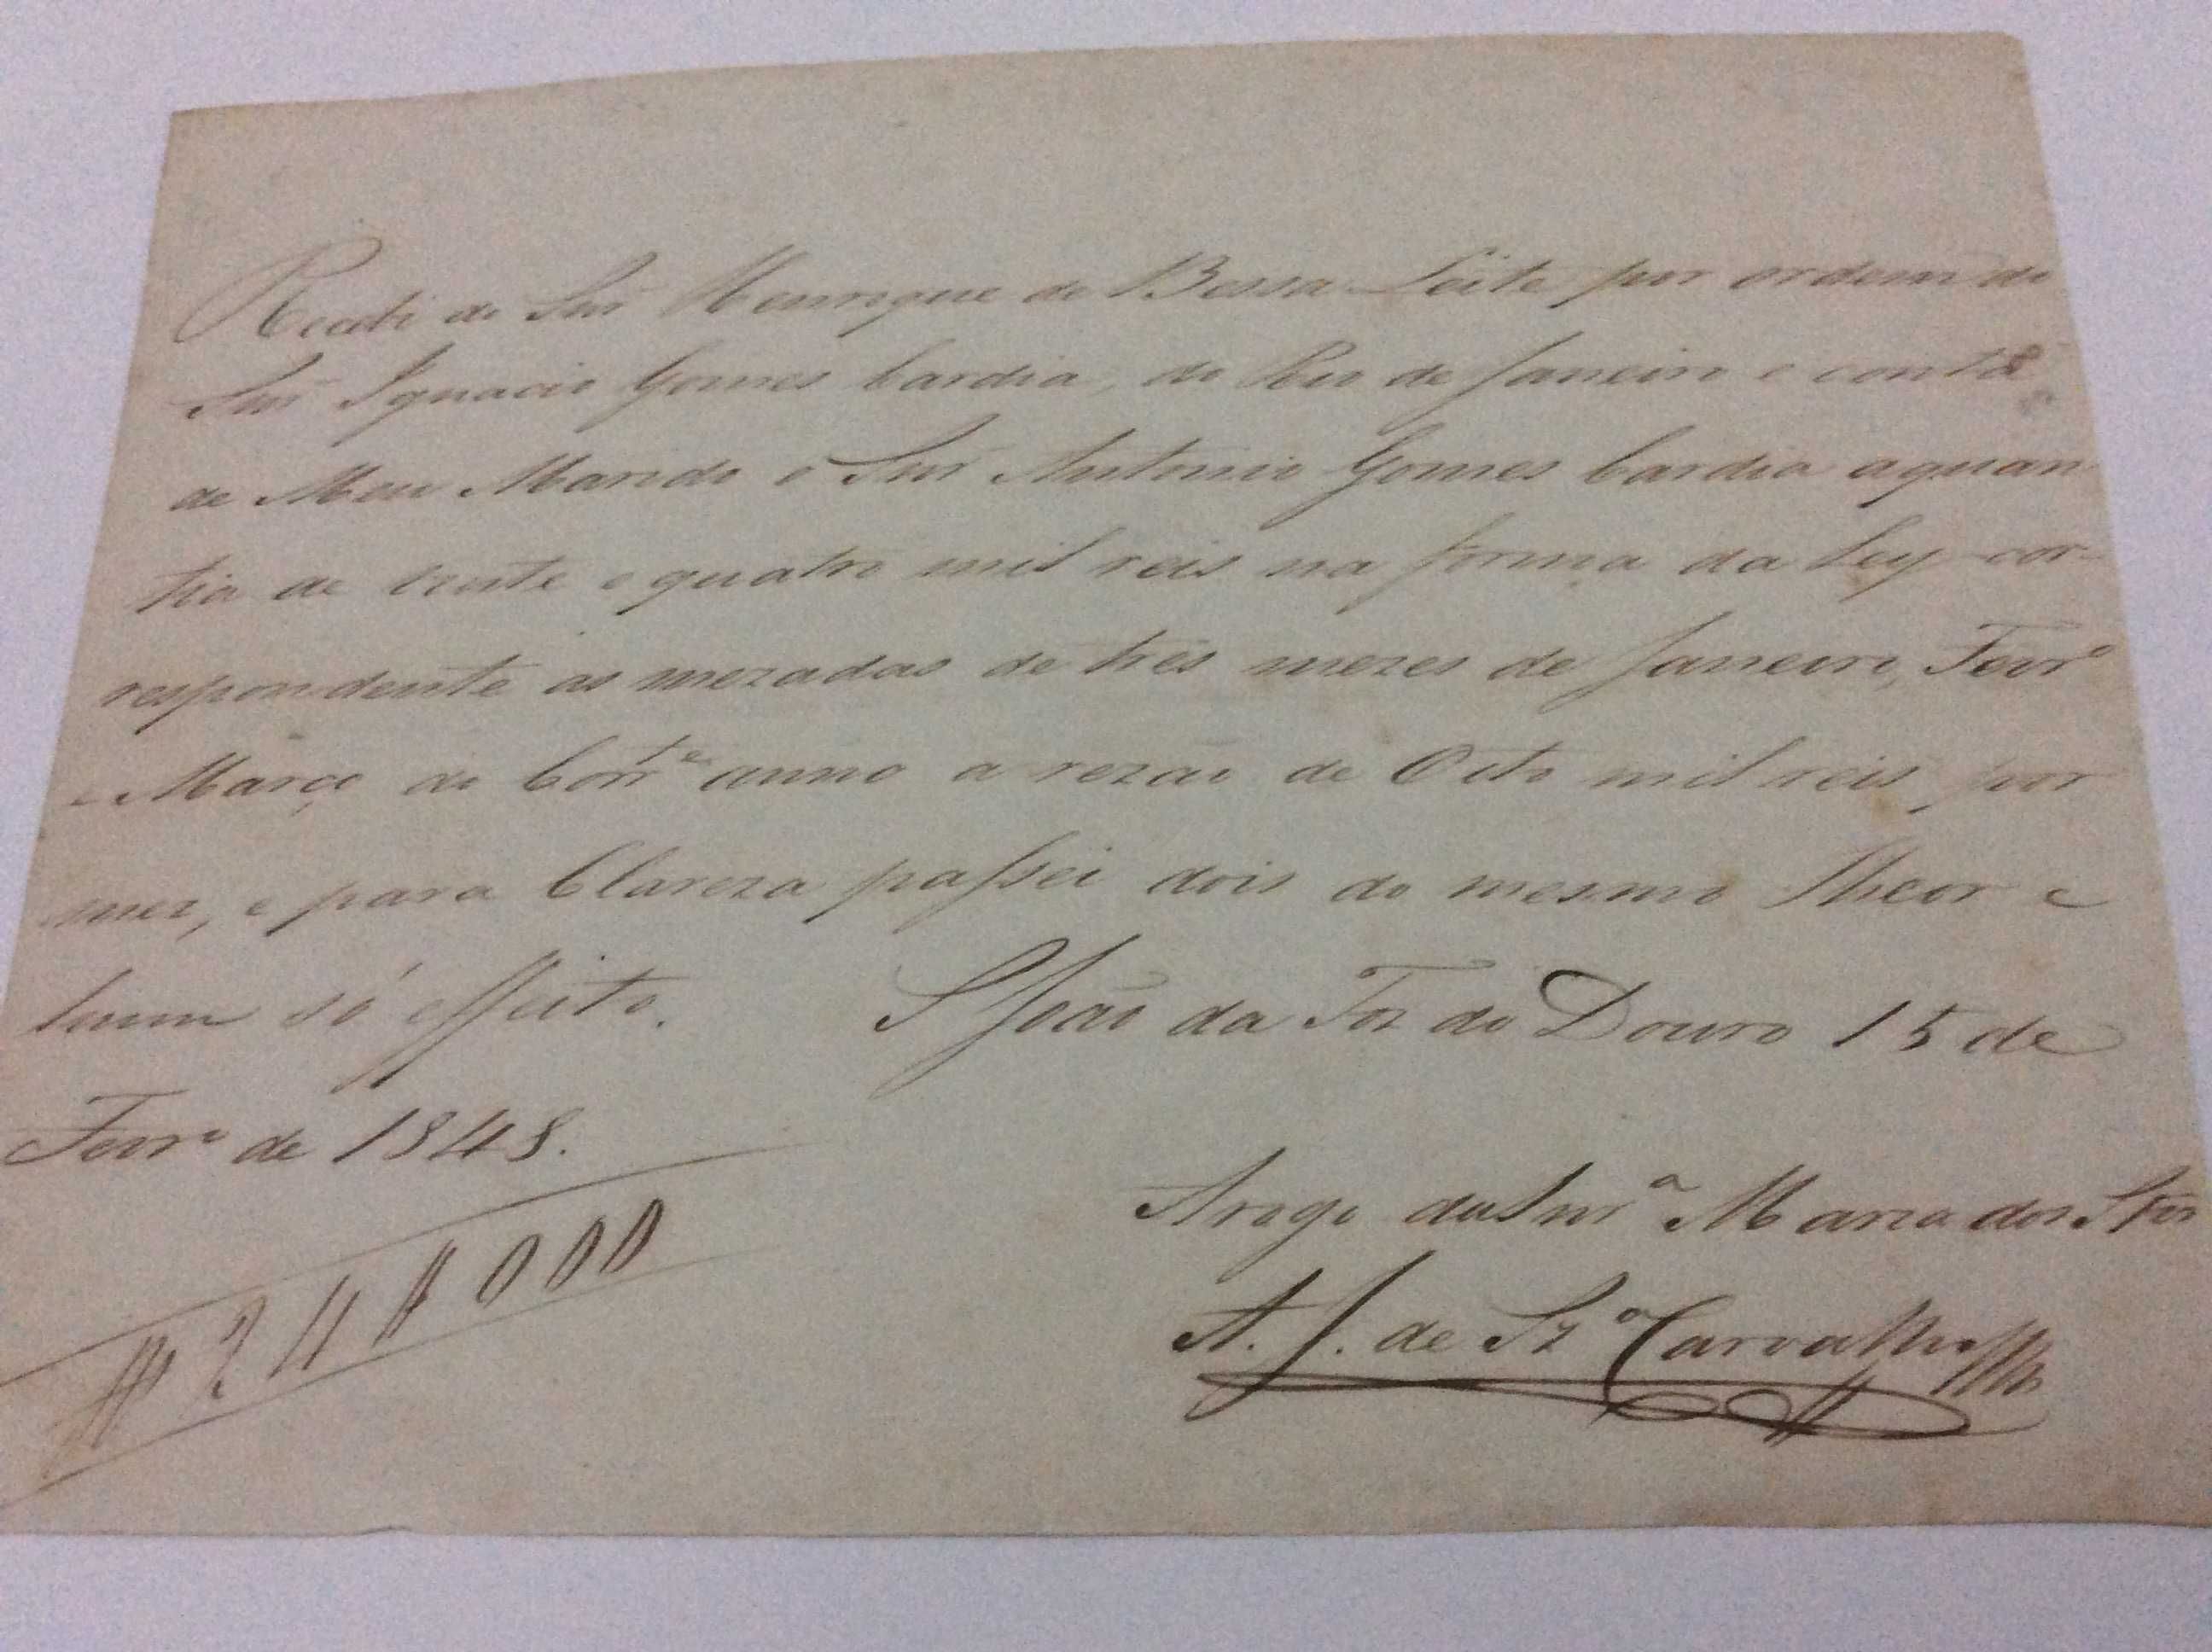 Recebi do Snr Henrique de Bessa Leite por ordem do
Snr Ignacio Gomes Cardia, do Rio de Janeiro e conta
de Meu Marido o Snr Antonio Gomes Cardia aquan-
tia de vinte e quatro mil reis na forma da Ley cor-
respondente as mezadas de três mezes de Janeiro, Fevrº
e Março do Corrte anno a rezão de Oito mil reis, por
mez, e para Clareza passei dois do mesmo theor e
hum só effeito. S João da Foz do Douro 15 de
Fevrº de 1848.
# 24$000
Arogo da Snrª Maria dos Stos
A. J. de Sza Carvalho